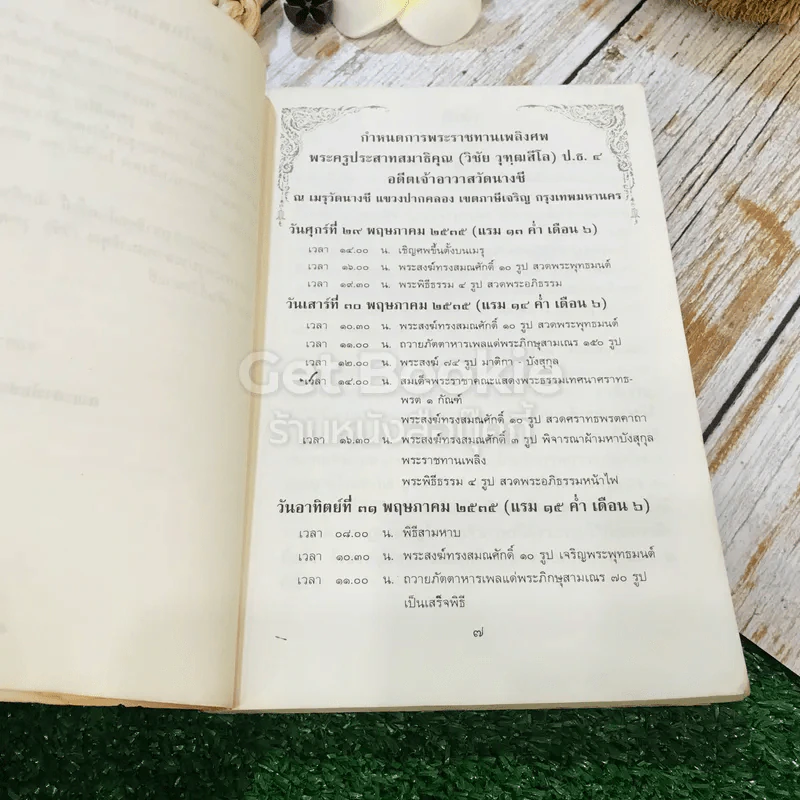 กำหนดการพระราชทานเพลิงศพ
พระครูประสาทสมาธิคุณ (วิชัย วุฑฺฒสีโล) ป.ธ. ๔
อดีตเจ้าอาวาสวัดนางชี
ณ เมรุวัดนางชี แขวงปากคลอง เขตภาษีเจริญ กรุงเทพมหานคร
วันศุกร์ที่ ๒๙ พฤษภาคม ๒๕๓๕ (แรม ๑๓ ค่ำ เดือน ๖)
เวลา ๑๔.๐๐ น. เชิญศพขึ้นตั้งบนเมรุ
เวลา ๑๖.๐๐ น. พระสงฆ์ทรงสมณศักดิ์ ๑๐ รูป สวดพระพุทธมนต์
เวลา ๑๙.๓๐ น. พระพิธีธรรม ๔ รูป สวดพระอภิธรรม
วันเสาร์ที่ ๓๐ พฤษภาคม ๒๕๓๕ (แรม ๑๔ ค่ำ เดือน ๖)
เวลา ๑๐.๓๐ น. พระสงฆ์ทรงสมณศักดิ์ ๑๐ รูป สวดพระพุทธมนต์
เวลา ๑๑.๐๐ น. ถวายภัตตาหารเพลแด่พระภิกษุสามเณร ๑๕๐ รูป
เวลา ๑๒.๐๐ น. พระสงฆ์ ๗๔ รูป มาติกา - บังสุกุล
เวลา ๑๔.๐๐ น. สมเด็จพระราชาคณะแสดงพระธรรมเทศนาศราทธ-
พรต ๑ กัณฑ์
พระสงฆ์ทรงสมณศักดิ์ ๑๐ รูป สวดศราทธพรตคาถา
เวลา ๑๖.๓๐ น. พระสงฆ์ทรงสมณศักดิ์ ๓ รูป พิจารณาผ้ามหาบังสุกุล
พระราชทานเพลิง
พระพิธีธรรม ๔ รูป สวดพระอภิธรรมหน้าไฟ
วันอาทิตย์ที่ ๓๑ พฤษภาคม ๒๕๓๕ (แรม ๑๕ ค่ำ เดือน ๖)
เวลา ๐๘.๐๐ น. พิธีสามหาบ
เวลา ๑๐.๓๐ น. พระสงฆ์ทรงสมณศักดิ์ ๑๐ รูป เจริญพระพุทธมนต์
เวลา ๑๑.๐๐ น. ถวายภัตตาหารเพลแด่พระภิกษุสามเณร ๗๐ รูป
เป็นเสร็จพิธี
๗
Get Bookie
ร้านหนังสือเก็ตบุ๊คกี้